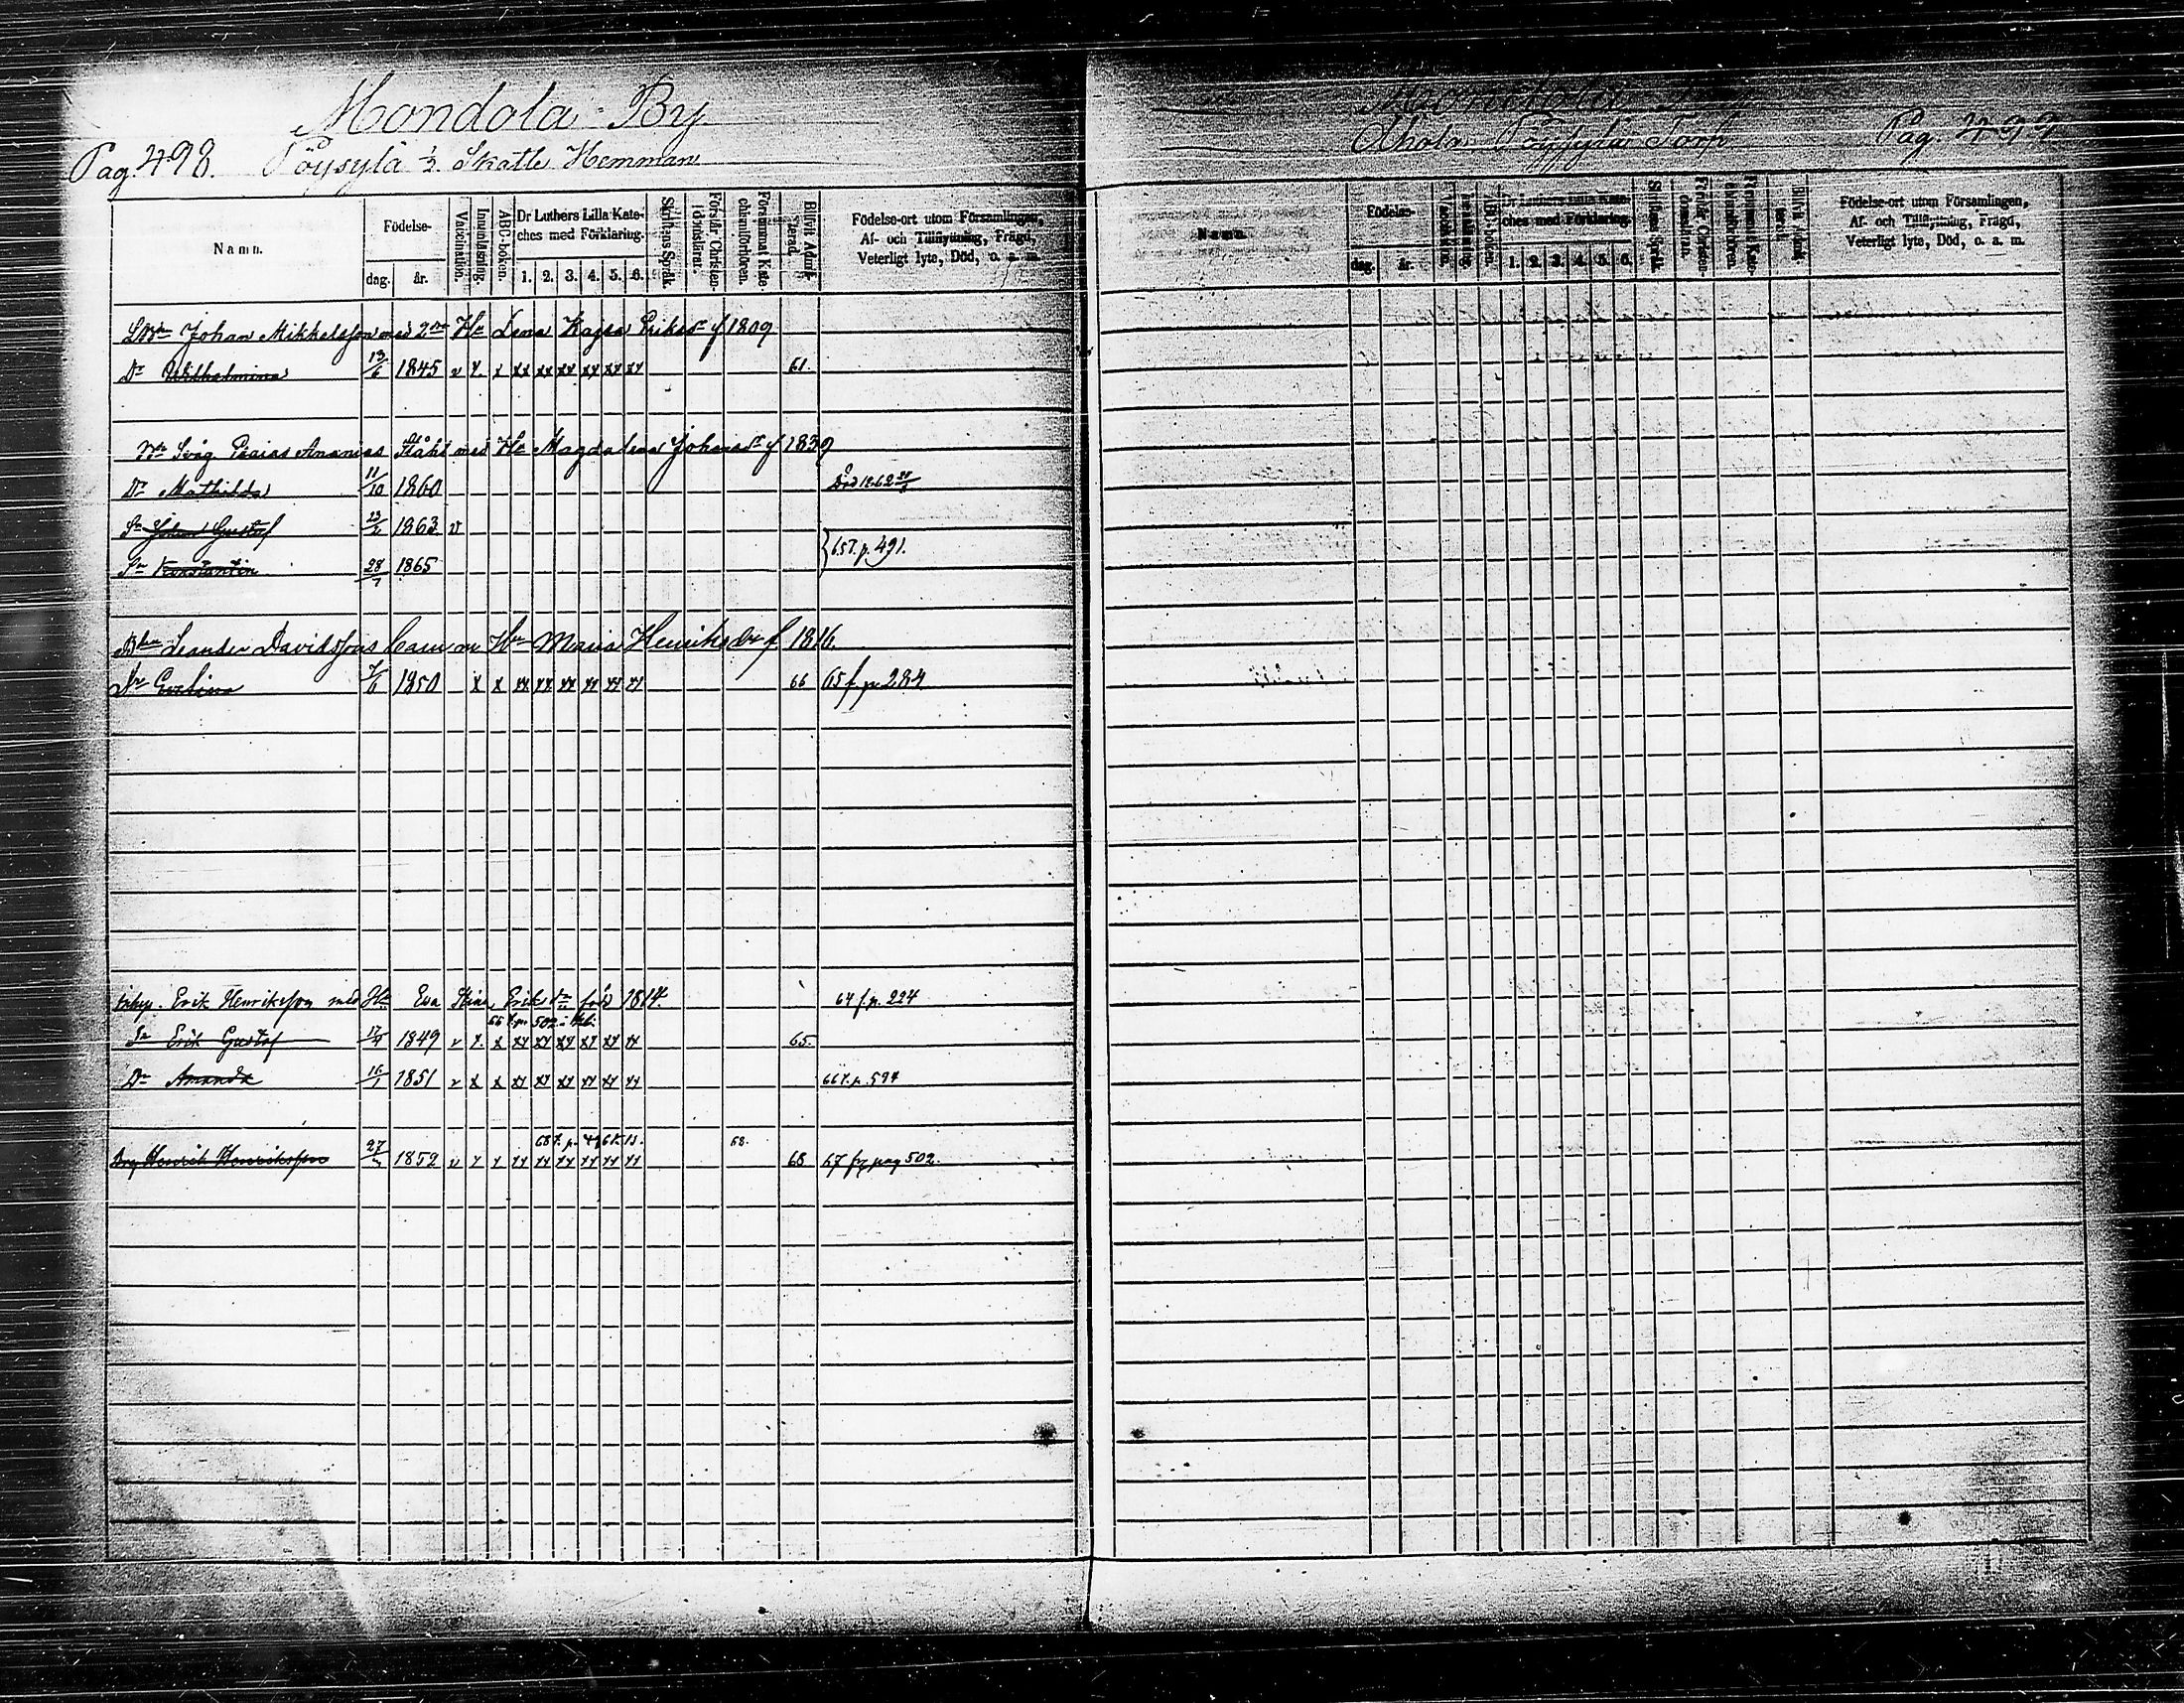 Mondola By
Pag. 498. Pöysylä ½ Skatte Hemman
Namn.
Födelse-
dag. år.
Vaccination.
Innanläsning.
ABD-boken.
Dr Luthers Lilla Kate-
ches med Förklaring.
1. 2. 3. 4. 5. 6.
Skriftens Språk.
Förstår Christen-
domslärat.
Försummat Kate-
chismiförhören.
Blifvit Admit-
terad.
Födelse-ort utom Församlingen,
Af- och Tillflyttning, Frägd,
Veterligt lyte, Död, o. a. m.
Johan Mikkelsson med 2dra Hu Lena Kajsa Eriksdr f 1809
Dr Wilhelmina 13/6 1845 v x x xx xx xx xx xx xx 61.
Måg Esaias Ananias Ståhl med Hu Magdalena Johansdr f 1839
Dr Mathilda 11/10 1860 Död 1862
Sn Johan Gustaf 1863 v
} 65 T. p. 491.
Sn Konstantin 28/7 1865
Leander Davidssons barn m Hu Maria Henriksdr f 1816.
Dr Evelina 1850 x x xx xx xx xx xx xx 66 65 f. p. 284
Inhys. Erik Henriksson med Hu Eva Stina Eriksdr född 1814. 64 f. p. 224
Sn Erik Gustaf 1849 v x x xx xx xx xx xx xx 65.
Dr Amanda 16/1 1851 v x x xx xx xx xx xx xx 66 T. p. 594
68.
Drg Henrik Henriksson 1852 v x x xx xx xx xx xx xx 68 67 fr pag 502.
Pöysylä Torp Pag. 499
Namn.
Födelse-
dag. år.
ABD-boken.
Dr Luthers Lilla Kate-
ches med Förklaring.
1. 2. 3. 4. 5. 6.
Skriftens Språk.
Födelse-ort utom Församlingen,
Af- och Tillflyttning, Frägd,
Veterligt lyte, Död, o. a. m.